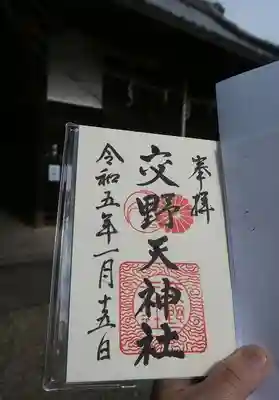 奉拝
交野天神社
令和五年一月十五日